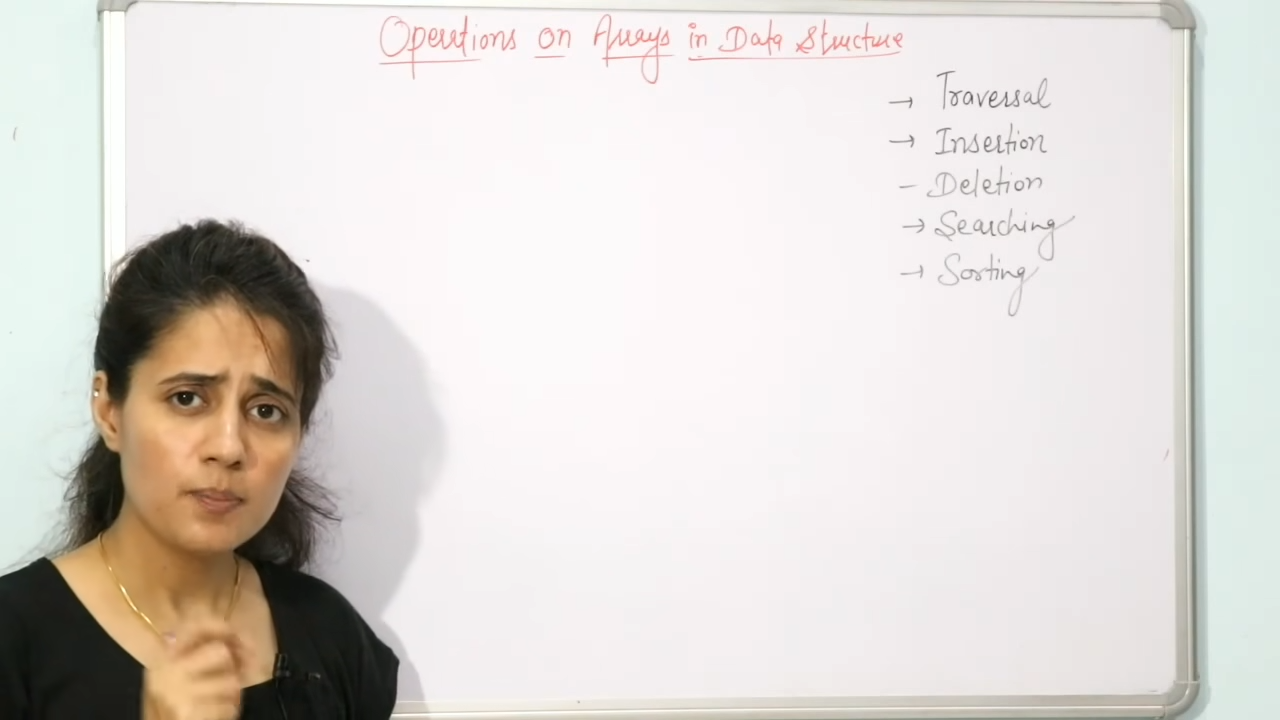 Operations on Arrays in Data Structure
→ Traversal
→ Insertion
- Deletion
→ Searching
→ Sorting